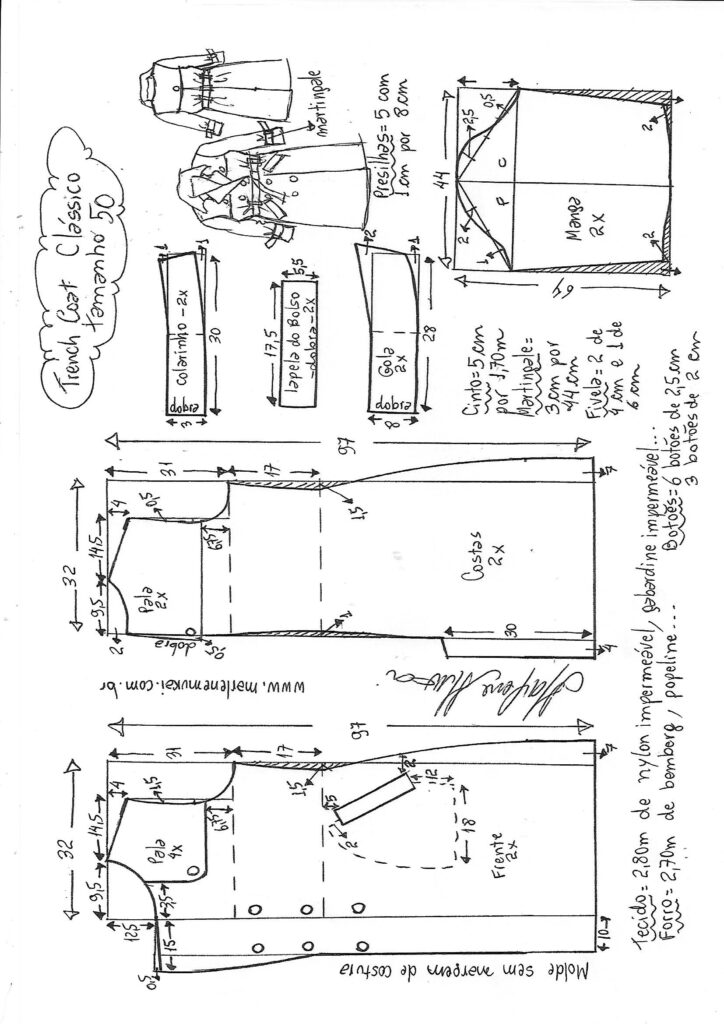 Trench Coat Clássico
tamanho 50
martingale
Presilhas = 5 com
1 cm por 8 cm
colarinho - 2x
dobra
3
30
1
1
lapela do bolso
- dobra - 2x
17,5
5,5
Gola
2x
dobra
8
28
2
1
Cinto = 5 cm
por 1,70m
Martingale =
3 cm por
44 cm
Fivela = 2 de
4 cm e 1 de
6 cm
Manga
2x
P
C
44
64
2,5
0,5
2
1
2
2
Costas
2x
Pala
2x
dobra
32
9,5
14,5
4
31
17
97
0,5
6,75
2
0,5
1,5
1
30
4
7
www.marlenemukai.com.br
Frente
2x
Pala
4x
32
9,5
14,5
4
31
17
97
1,5
6,75
12,5
3,5
15
0,5
1,5
5
2
2
12
18
10
7
Molde sem margem de costura
Tecido = 2,80m de nylon impermeável, gabardine impermeável...
Forro = 2,70m de bemberg / popeline...
Botões = 6 botões de 2,5 cm
3 botões de 2 cm